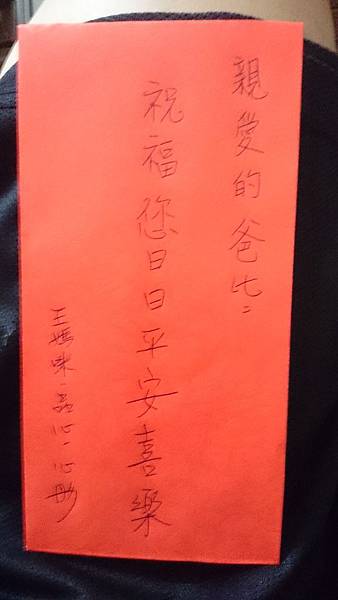 親愛的爸比：
祝福您日日平安喜樂
王媽咪、品心、心彤